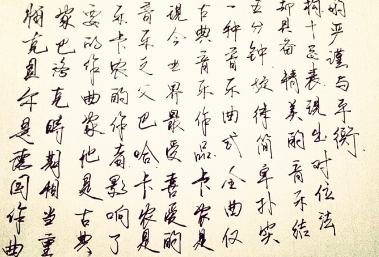 帕克贝尔是德国作曲
家巴洛克時期相当重
要的作曲家他是古典
乐卡农的作者影响了
音乐之父巴哈卡农是
现今世界最受喜爱的
古典音乐作品卡农是
一种音乐曲式全曲仅
五分钟旋律简单朴实
却具备精美的音乐结
构十足表现出对位法
的严谨与平衡.